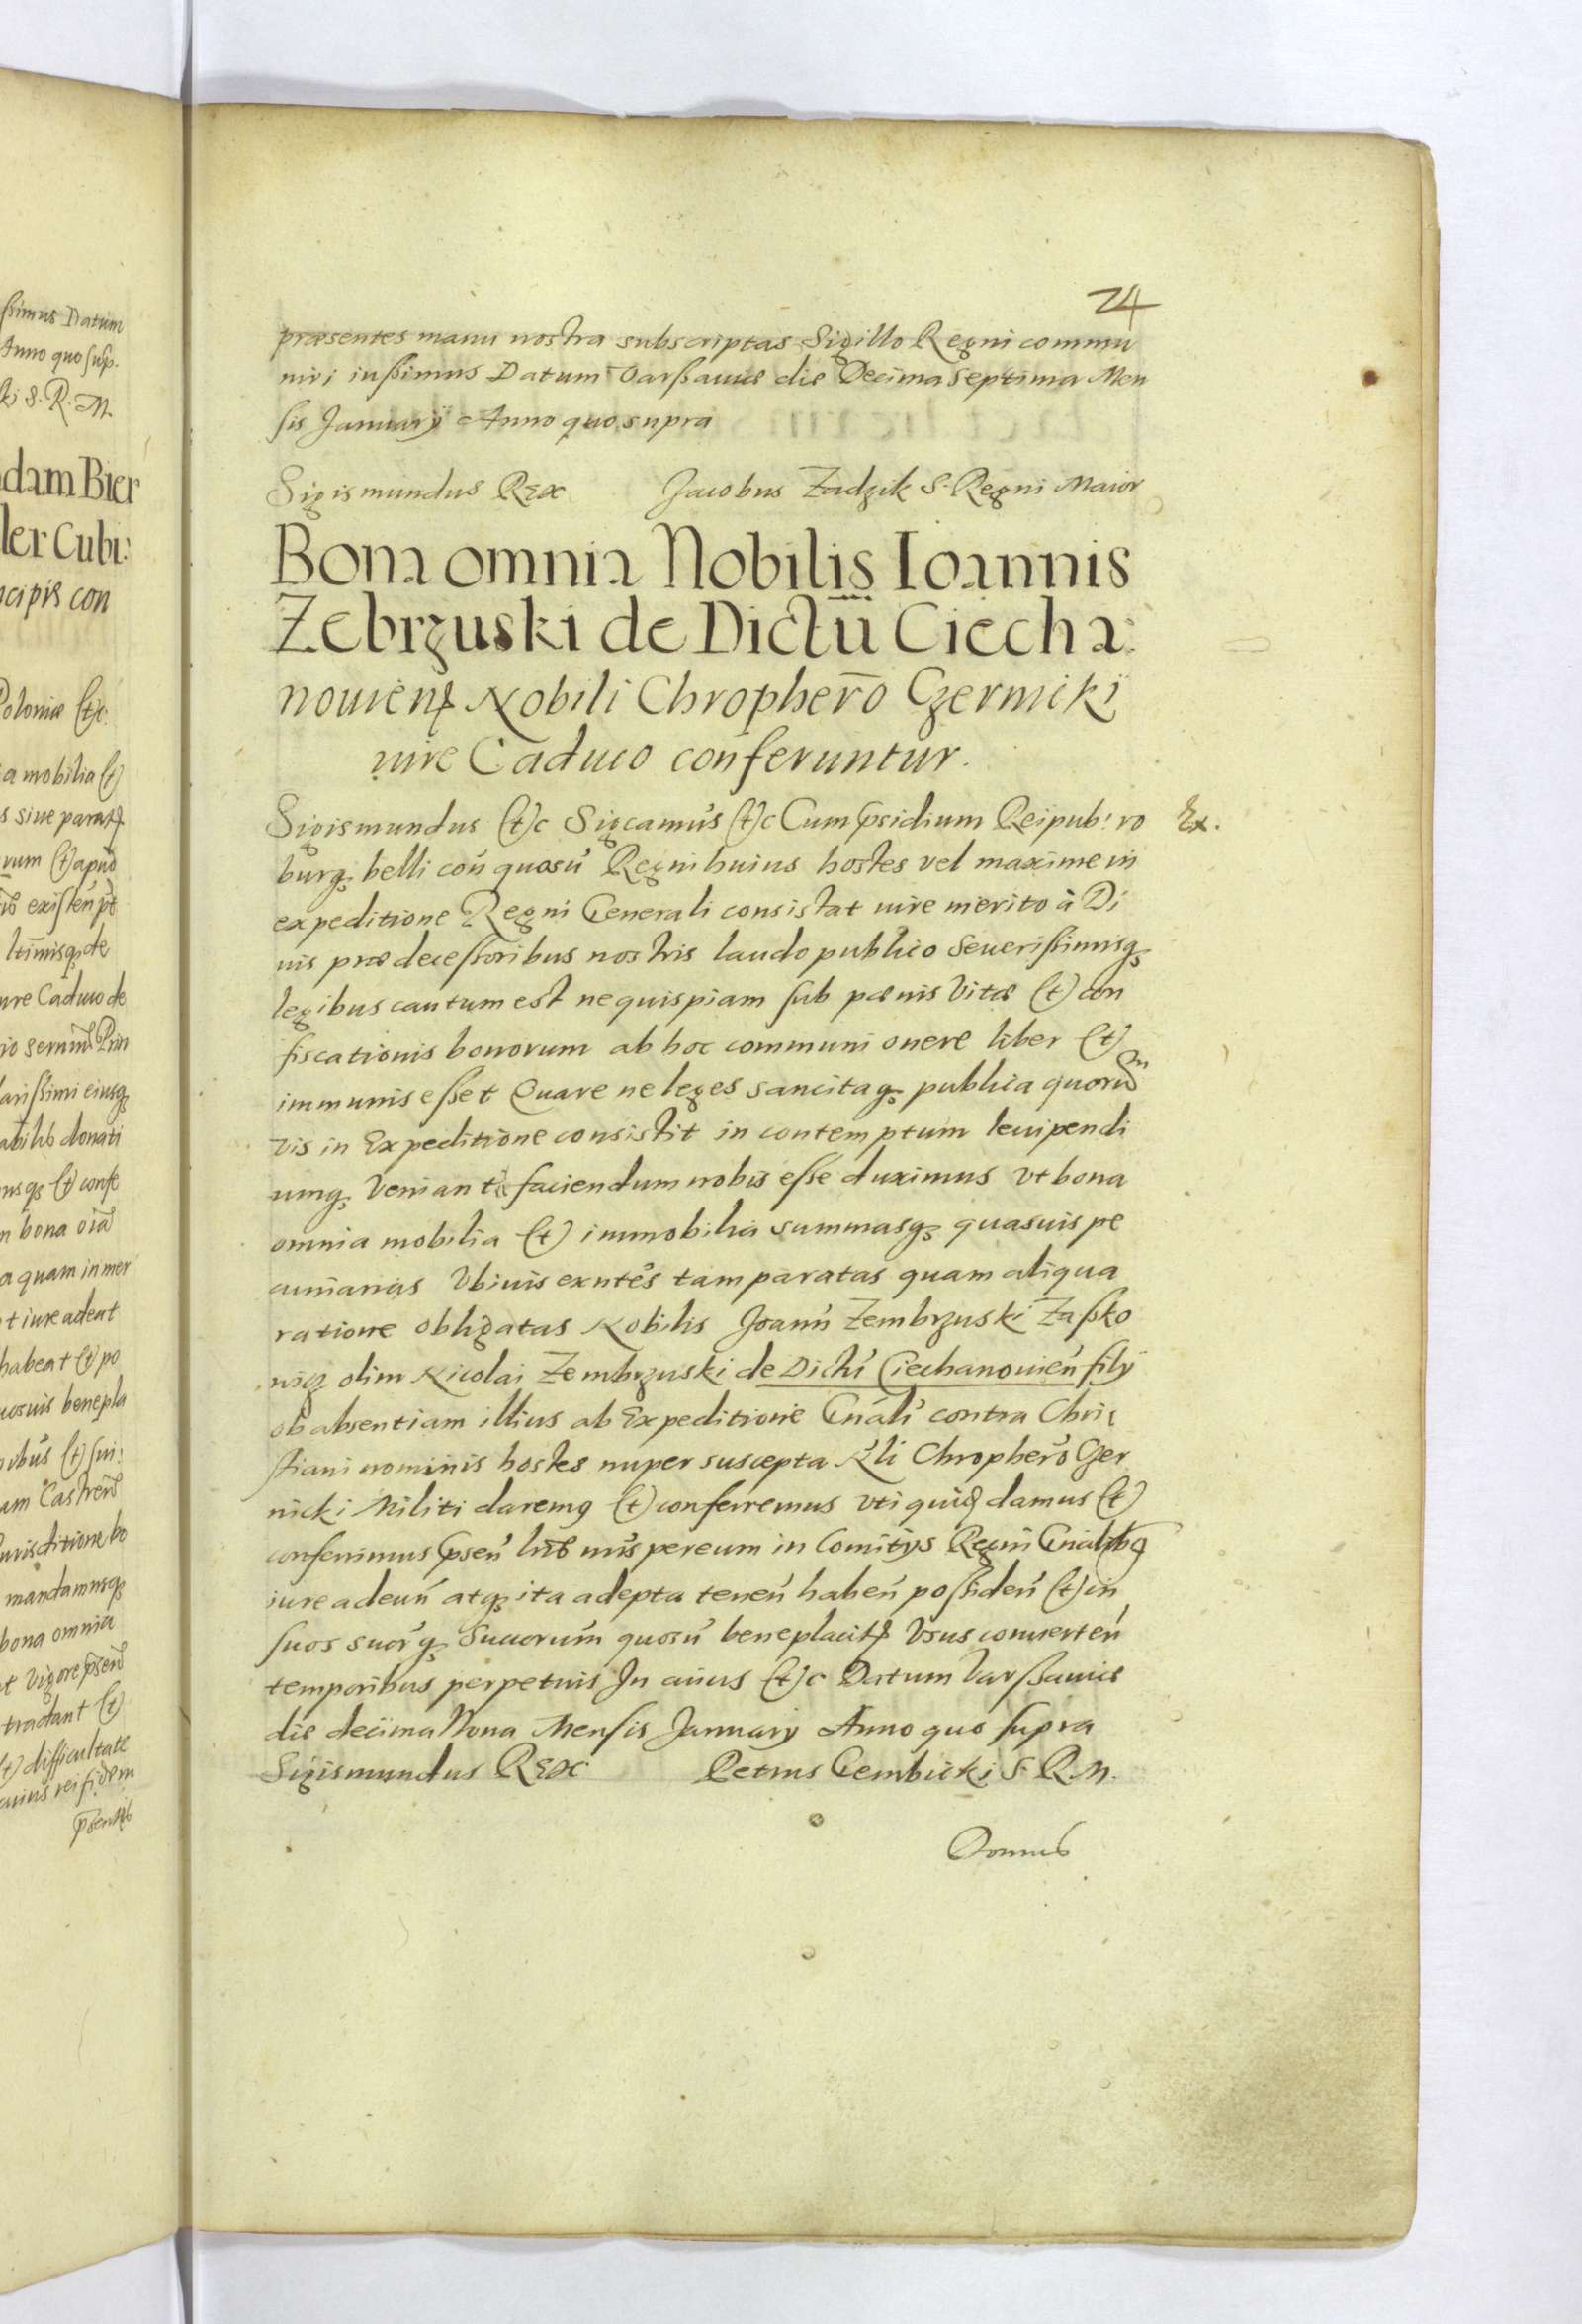 ßimus Datum
Anno quo sup.
ki S. R. M.
dam Bier
ler Cubi:
ncipis con
Poloniæ (t)c.
a mobilia (t)
s siue parat
rum (t) apud
ltimisq de
ure Caduco de
arissimi eiusq
abilib donati
nusq (t) confe
n bona oia
a quam in mer
t iure adeat
habeat (t) po
uosuis benepla
ibus (t) sui:
am Castren
Jurisditione bo
mandamusq
bona omnia
t vigore psen
tradant (t)
(t) difficultate
cuius rei fidem
psentib
24
præsentes manu nostra subscriptas Sigillo Regni commu
niri iussimus Datum Varßauiæ die Decima Septima Men
sis Januarÿ Anno quo supra
Sigismundus Rex Jacobus Zadzik S. Regni Maior
Bona omnia Nobilis Ioannis
Zebrzuski de Dictu Ciecha:
nouien Nobili Chrophero Czernicki
iure Caduco conferuntur.
Sigismundus (t)c Sigcamus (t)c Cum psidium Reipub: ro
Ex.
burq belli con quosu Regni huius hostes vel maxime in
expeditione Regni Generali consistat iure merito à Di
uis prædecessoribus nostris laudo publico Seuerissimisq
legibus cautum est ne quispiam sub pænis Vitæ (t) con
fiscationis bonorum ab hoc communi onere liber (t)
immunis esset Quare ne leges sancitaq publica quoru
vis in Expeditione consistit in contemptum leuipendi
umq Veniant faciendum nobis esse duximus vt bona
omnia mobilia (t) immobilia summasq quasuis pe
cuniarias Vbiuis exntes tam paratas quam aliqua
ratione obligatas Nobilis Joann Zembrzuski Zaßko
wiz olim Nicolai Zembrzuski de Dictu Ciechanouien filÿ
ob absentiam illius ab Expeditione Gnali contra Chri
stiani nominis hostes nuper suscepta Nli Chrophero Czer
nicki Militi daremq (t) conferremus vti quid damus (t)
conferimus psen lrib nris per eum in Comitÿs Regni Gnalibq
iure adeun atq ita adepta tenen haben possiden (t) in
suos suorq Succorum quosu beneplacit Vsus conuerten
temporibus perpetuis In cuius (t)c Datum Varßauiæ
die decima Nona Mensis Januarÿ Anno quo supra
Sigismundus Rex Petrus Gembicki S. R. M.
Domus